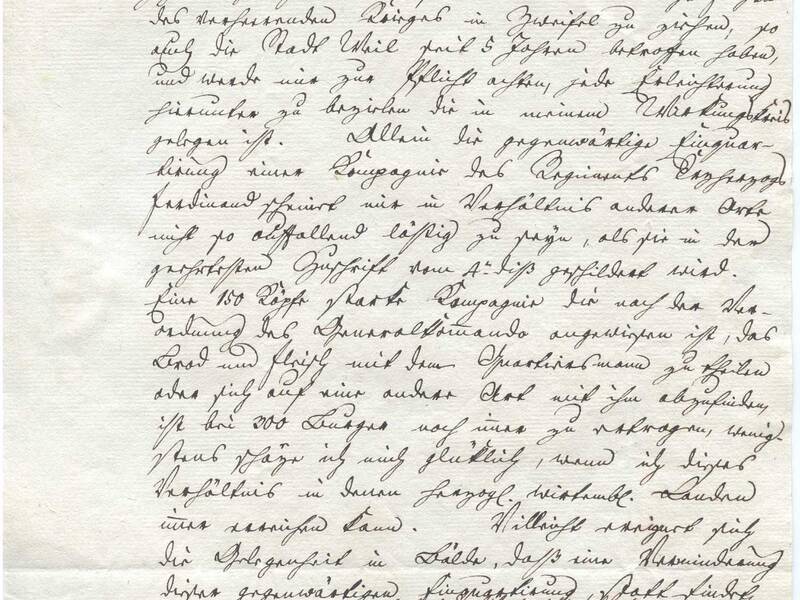 des verheerenden Krieges in Zweifel zu ziehen, so
auch die Stadt Weil seit 5 Jahren betrofen haben,
und werde mir zur Pflicht achten, jede Erleichterung
hierunter zu bezielen die in meinem Wirkungskreis
gelegen ist. Allein die gegenwärtige Einquar-
tirung einer Kompagnie des Regiments Erzherzogs
Ferdinand scheint mir in Verhältnis anderer Orte
nicht so auffallend lästig zu seyn, als sie in der
geehrtesten Zuschrift vom 4ten diß geschildert wird.
Eine 150 Köpfe starke Kompagnie die nach der Ver-
ordnung des Generalkommando angewiesen ist, das
Brod und Fleisch mit dem Quartiersmann zu theilen
oder sich auf eine andere Art mit ihm abzufinden,
ist bei 300 Burger noch immer zu ertragen, wenig-
stens schäze ich mich glüklich, wenn ich dieses
Verhältnis in denen herzogl. wirtembl. Landen
immer erreichen kann. Villeicht ereignet sich
die Gelegenheit in Bälde, daß eine Verminderung
dieser gegenwärtigen Einquartirung, statt findet